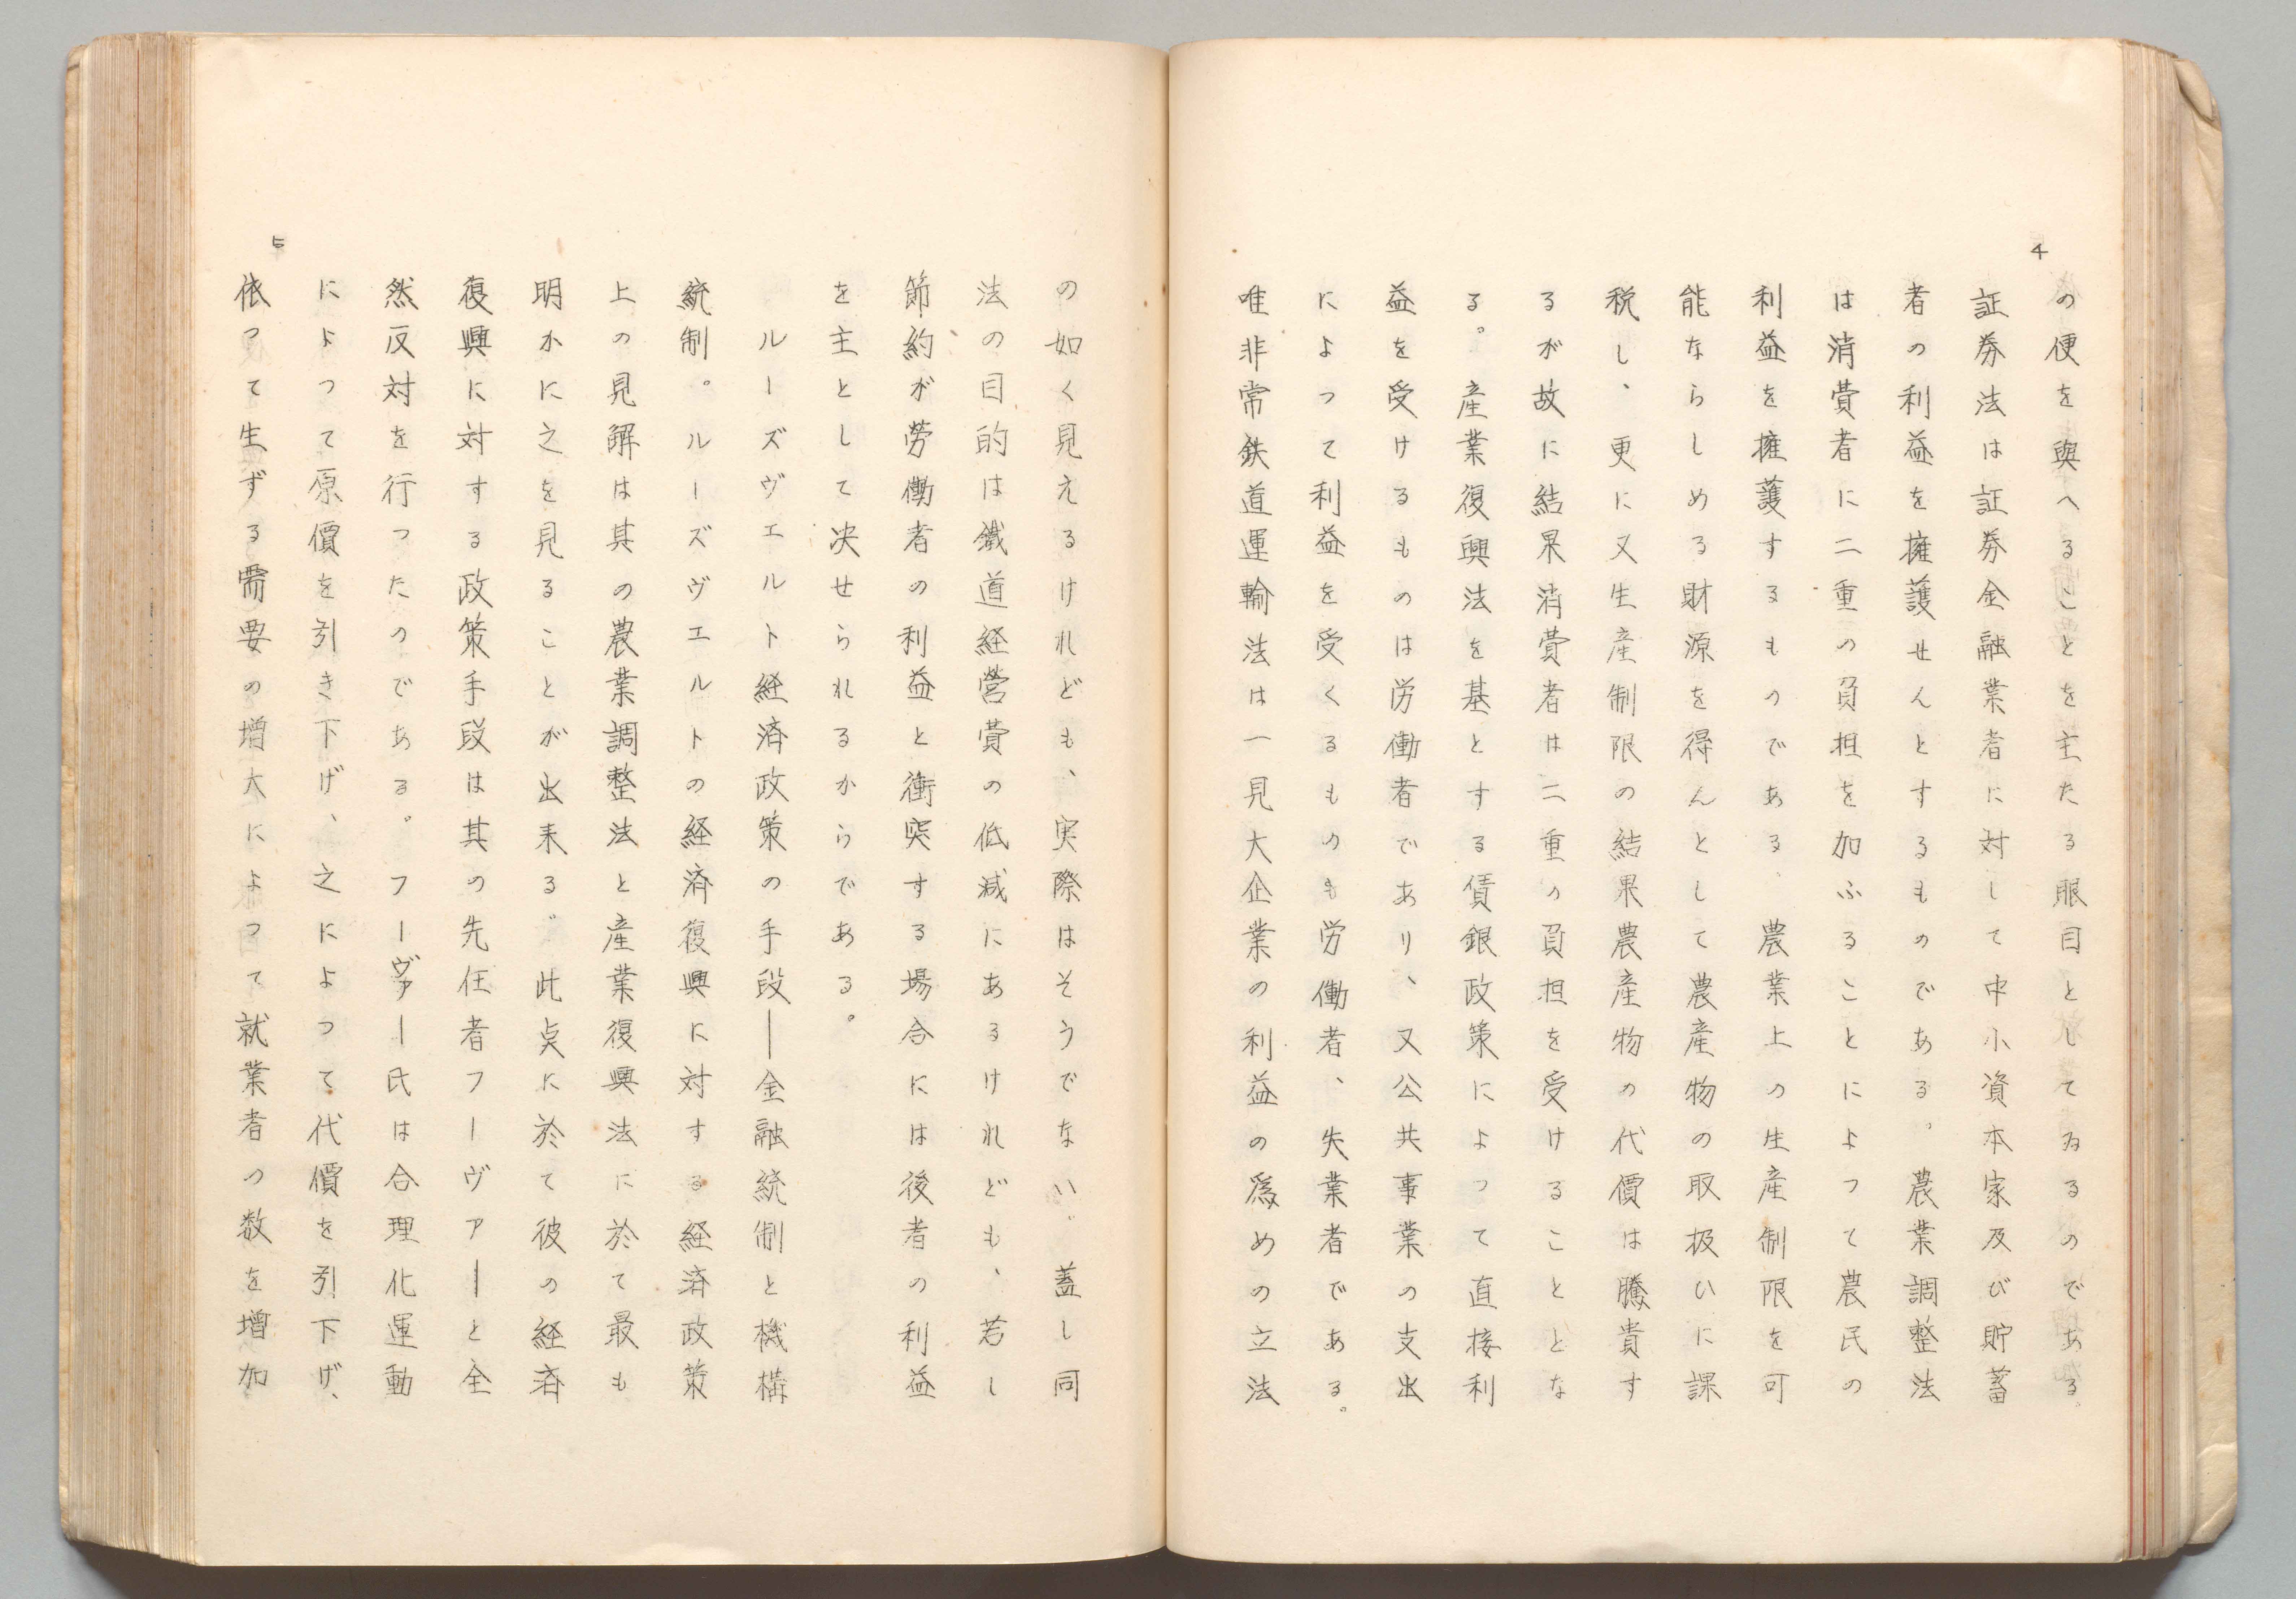 4
の便を與へることを主たる眼目としてゐるのである。
証券法は証券金融業者に対して中小資本家及び貯蓄
者の利益を擁護せんとするものである。農業調整法
は消費者に二重の負担を加ふることによつて農民の
利益を擁護するものである、農業上の生産制限を可
能ならしめる財源を得んとして農産物の取扱ひに課
税し、更に又生産制限の結果農産物の代價は騰貴す
るが故に結果消費者は二重の負担を受けることとな
る。産業復興法を基とする賃銀政策によつて直接利
益を受けるものは労働者であり、又公共事業の支出
によつて利益を受くるものも労働者、失業者である。
唯非常鉄道運輸法は一見大企業の利益の爲めの立法
の如く見えるけれども、実際はそうでない。蓋し同
法の目的は鐵道経営費の低減にあるけれども、若し
節約が勞働者の利益と衝突する場合には後者の利益
を主として决せられるからである。
ルーズヴエルト経済政策の手段―金融統制と機構
統制。ルーズヴエルトの経済復興に対する経済政策
上の見解は其の農業調整法と産業復興法に於て最も
明かに之を見ることが出来る。此点に於て彼の経済
復興に対する政策手段は其の先任者フーヴァーと全
然反対を行つたのである。フーヴァー氏は合理化運動
によつて原價を引き下げ、之によつて代價を引下げ、
依つて生ずる需要の増大によつて就業者の数を増加
5